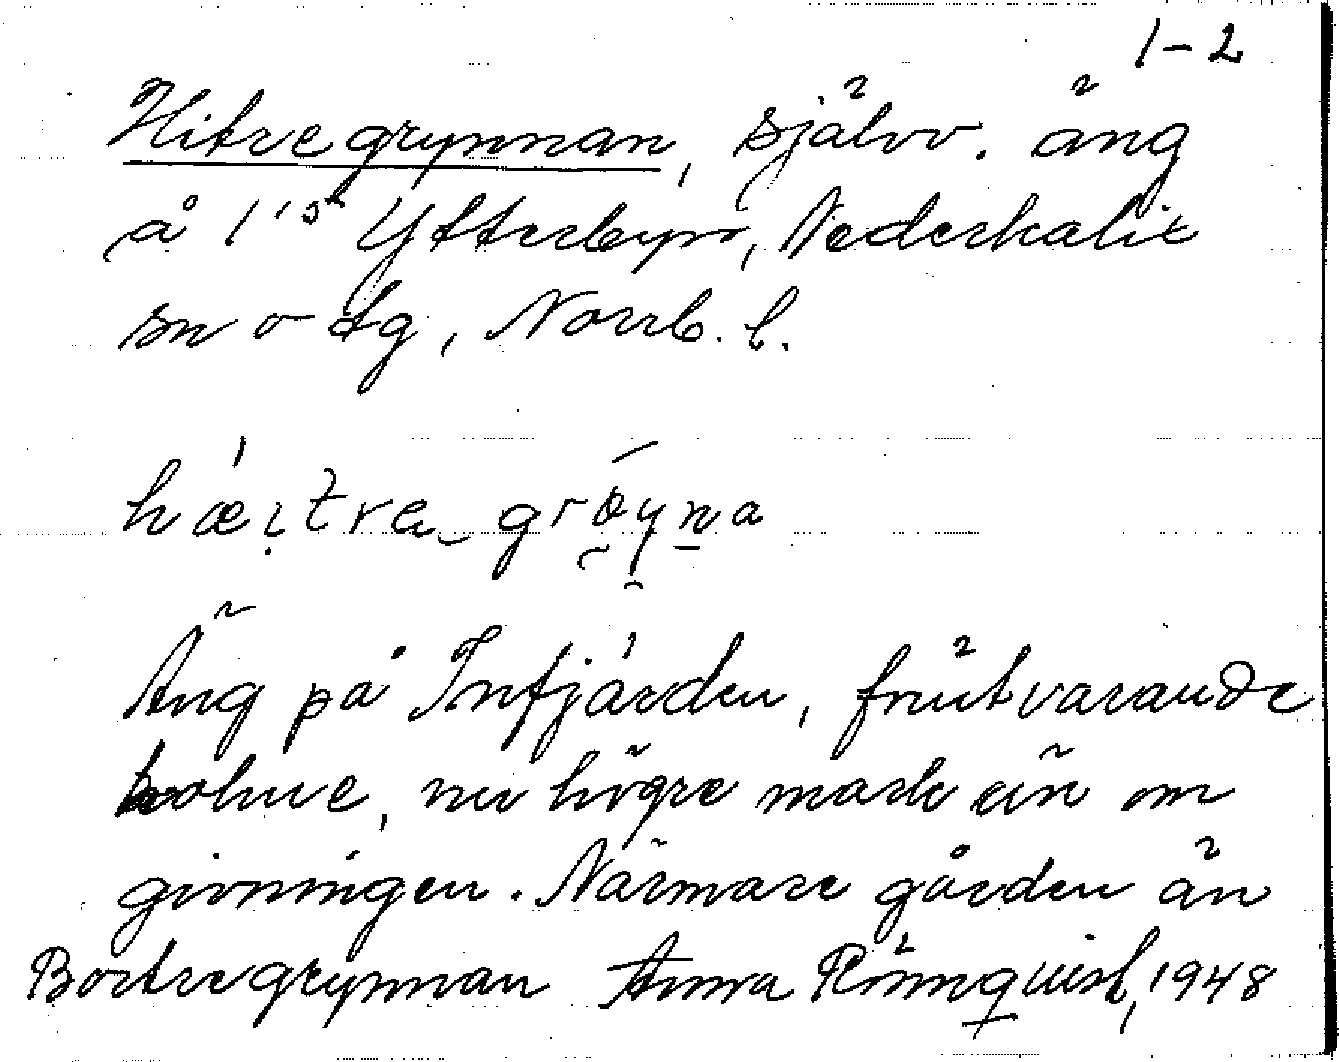 1-2
Hitregrynnan, självv. äng
å 1:5 Ytterbyn, Nederkalix
sn o tg, Norrb. l.
hæitra grøyna
Äng på Infjärden, främtvarande
holme, nu högre mark än om
givningen. Närmare gården än
Bortregrynnan Anna Rönnquist, 1948